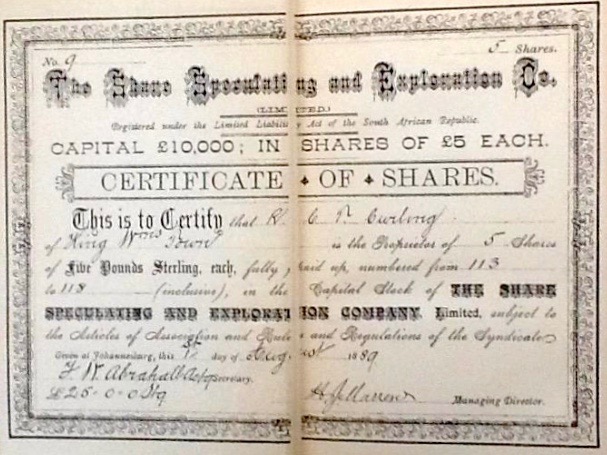 No. 9 5 Shares.
The Share Speculating and Exploration Co.
(LIMITED.)
Registered under the Limited Liability Act of the South African Republic.
CAPITAL £10,000; IN SHARES OF £5 EACH.
CERTIFICATE OF SHARES.
This is to Certify that C Curling
of King Wms Town is the Proprietor of 5 Shares
of Five Pounds Sterling, each, fully paid up, numbered from 113
to 118 (inclusive), in the Capital Stock of THE SHARE
SPECULATING AND EXPLORATION COMPANY, Limited, subject to
the Articles of Association and Rules and Regulations of the Syndicate
Given at Johannesburg, this day of August 1889
F. W. Abrahall Secretary.
£25-0-0 Managing Director.